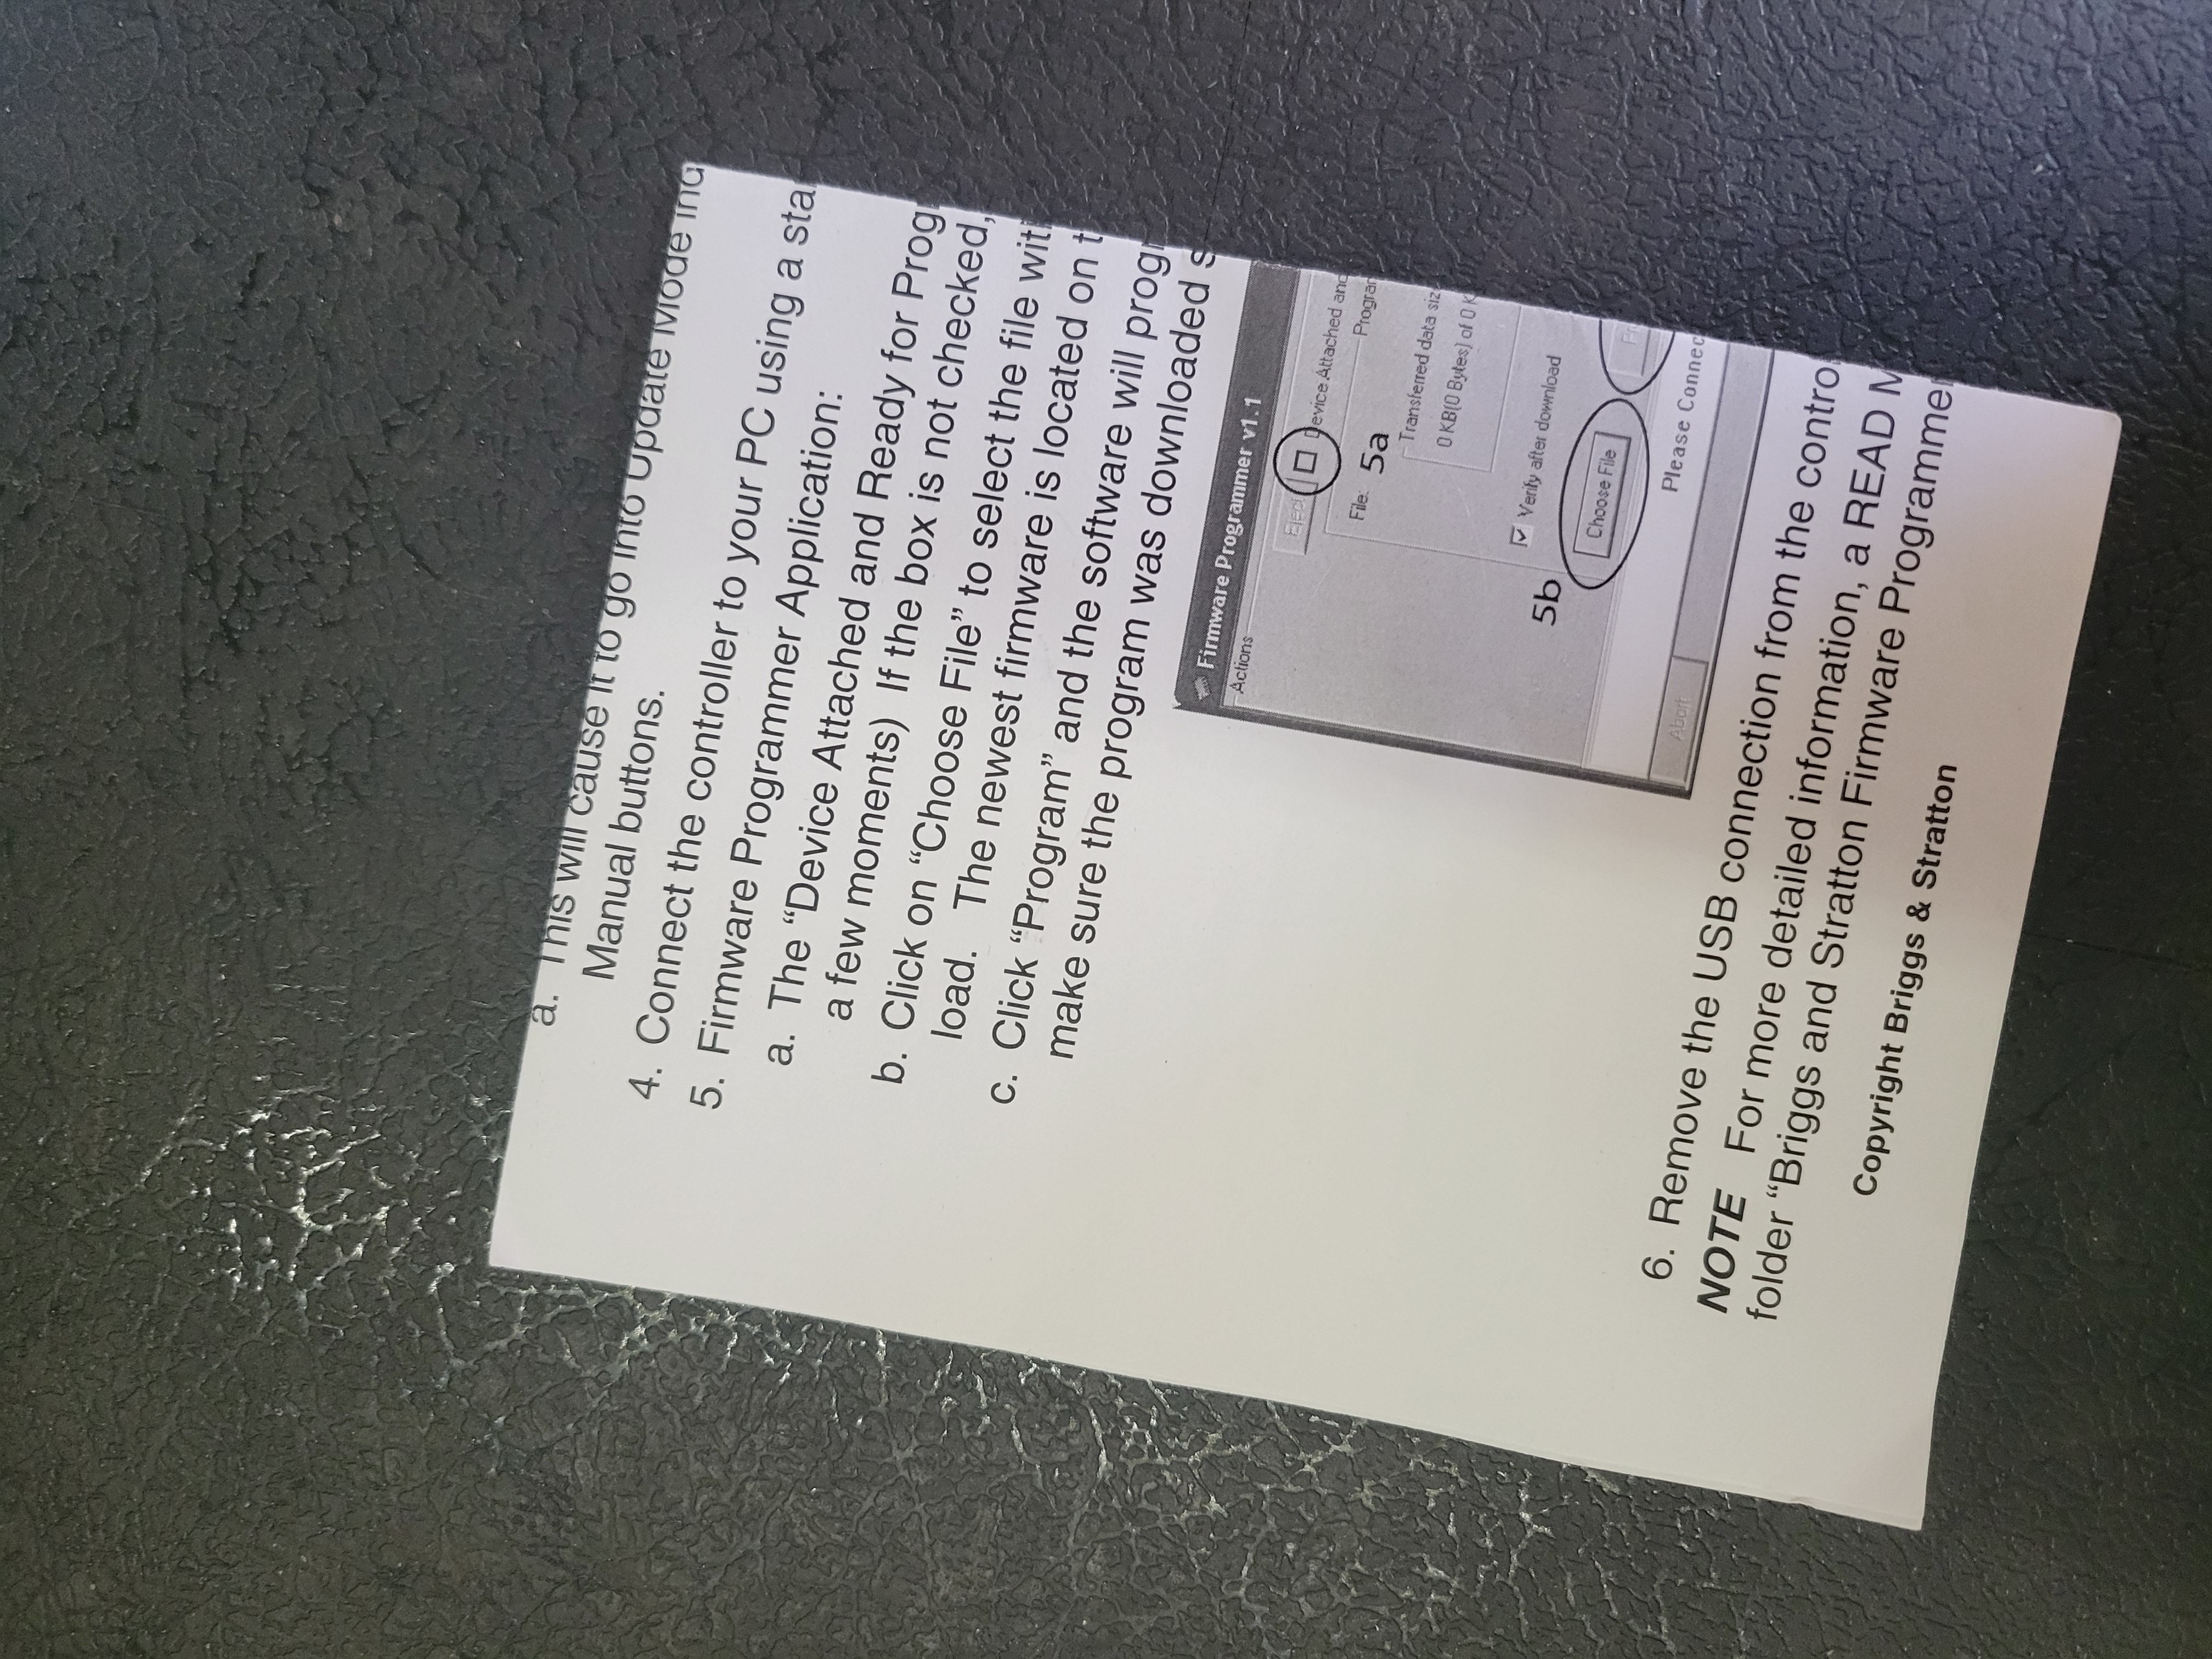 a. This will cause it to go into Update Mode ind
Manual buttons.
4. Connect the controller to your PC using a sta
5. Firmware Programmer Application:
a. The “Device Attached and Ready for Progr
a few moments) If the box is not checked,
b. Click on “Choose File” to select the file with
load. The newest firmware is located on t
c. Click “Program” and the software will progr
make sure the program was downloaded s
Firmware Programmer v1.1
Actions
Eject Device Attached and
File: 5a Program
Transferred data siz
0 KB(0 Bytes) of 0 K
Verify after download
5b
Choose File Pr
Please Connec
Abort
6. Remove the USB connection from the contro
NOTE For more detailed information, a READ M
folder “Briggs and Stratton Firmware Programmer
Copyright Briggs & Stratton